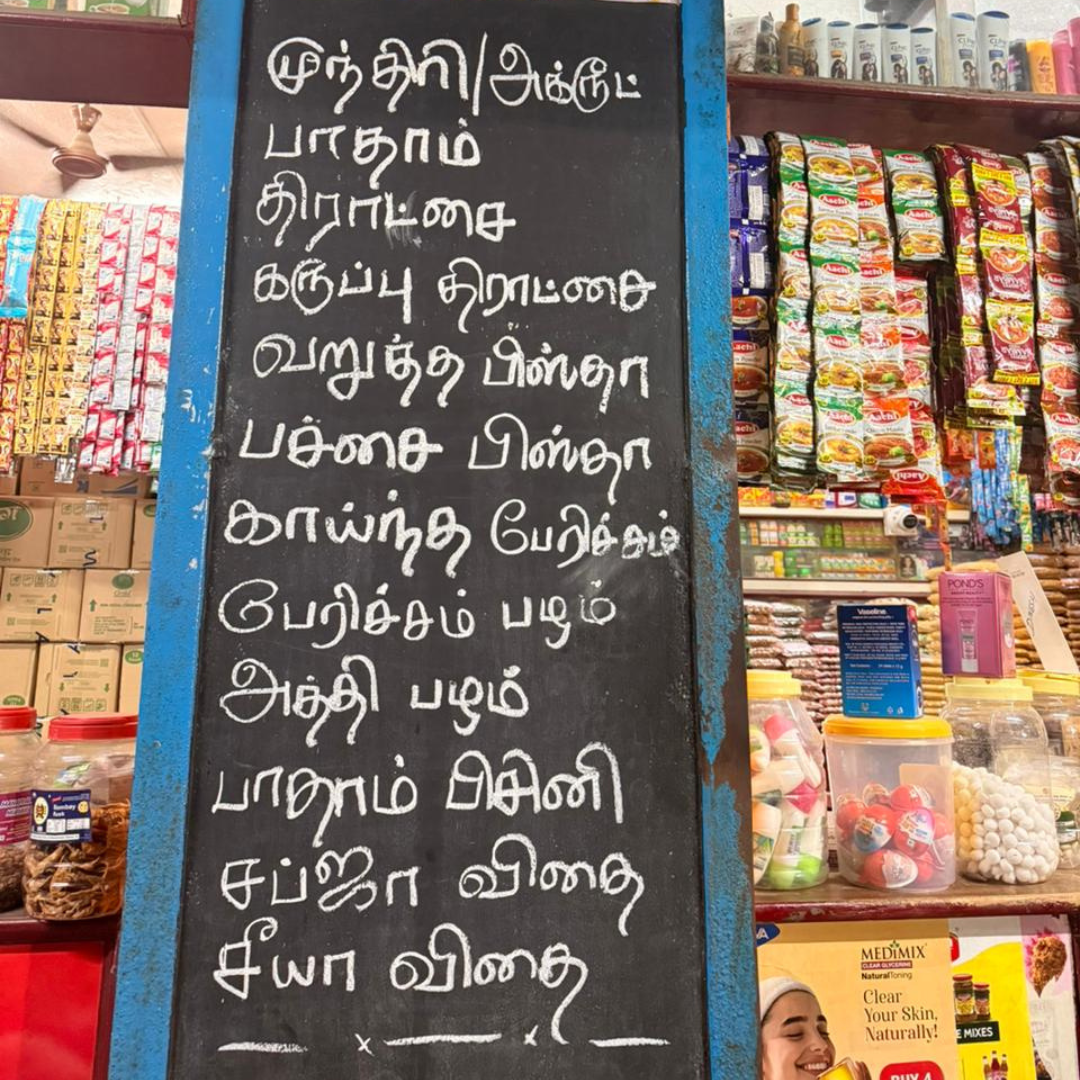 முந்திரி/அக்ரூட்
பாதாம்
திராட்சை
கருப்பு திராட்சை
வறுத்த பீஸ்தா
பச்சை பிஸ்தா
காய்ந்த பேரிச்சம்
பேரிச்சம் பழம்
அத்தி பழம்
பாதாம் பிசினி
சப்ஜா விதை
சீயா விதை
Aachi
Aachi
Aachi
Aachi
Aachi
POND'S
Vaseline
Bombay
MEDiMIX
CLEAR GLYCERINE
Natural Toning
Clear
Your Skin,
Naturally!
BUY 4
E MIXES